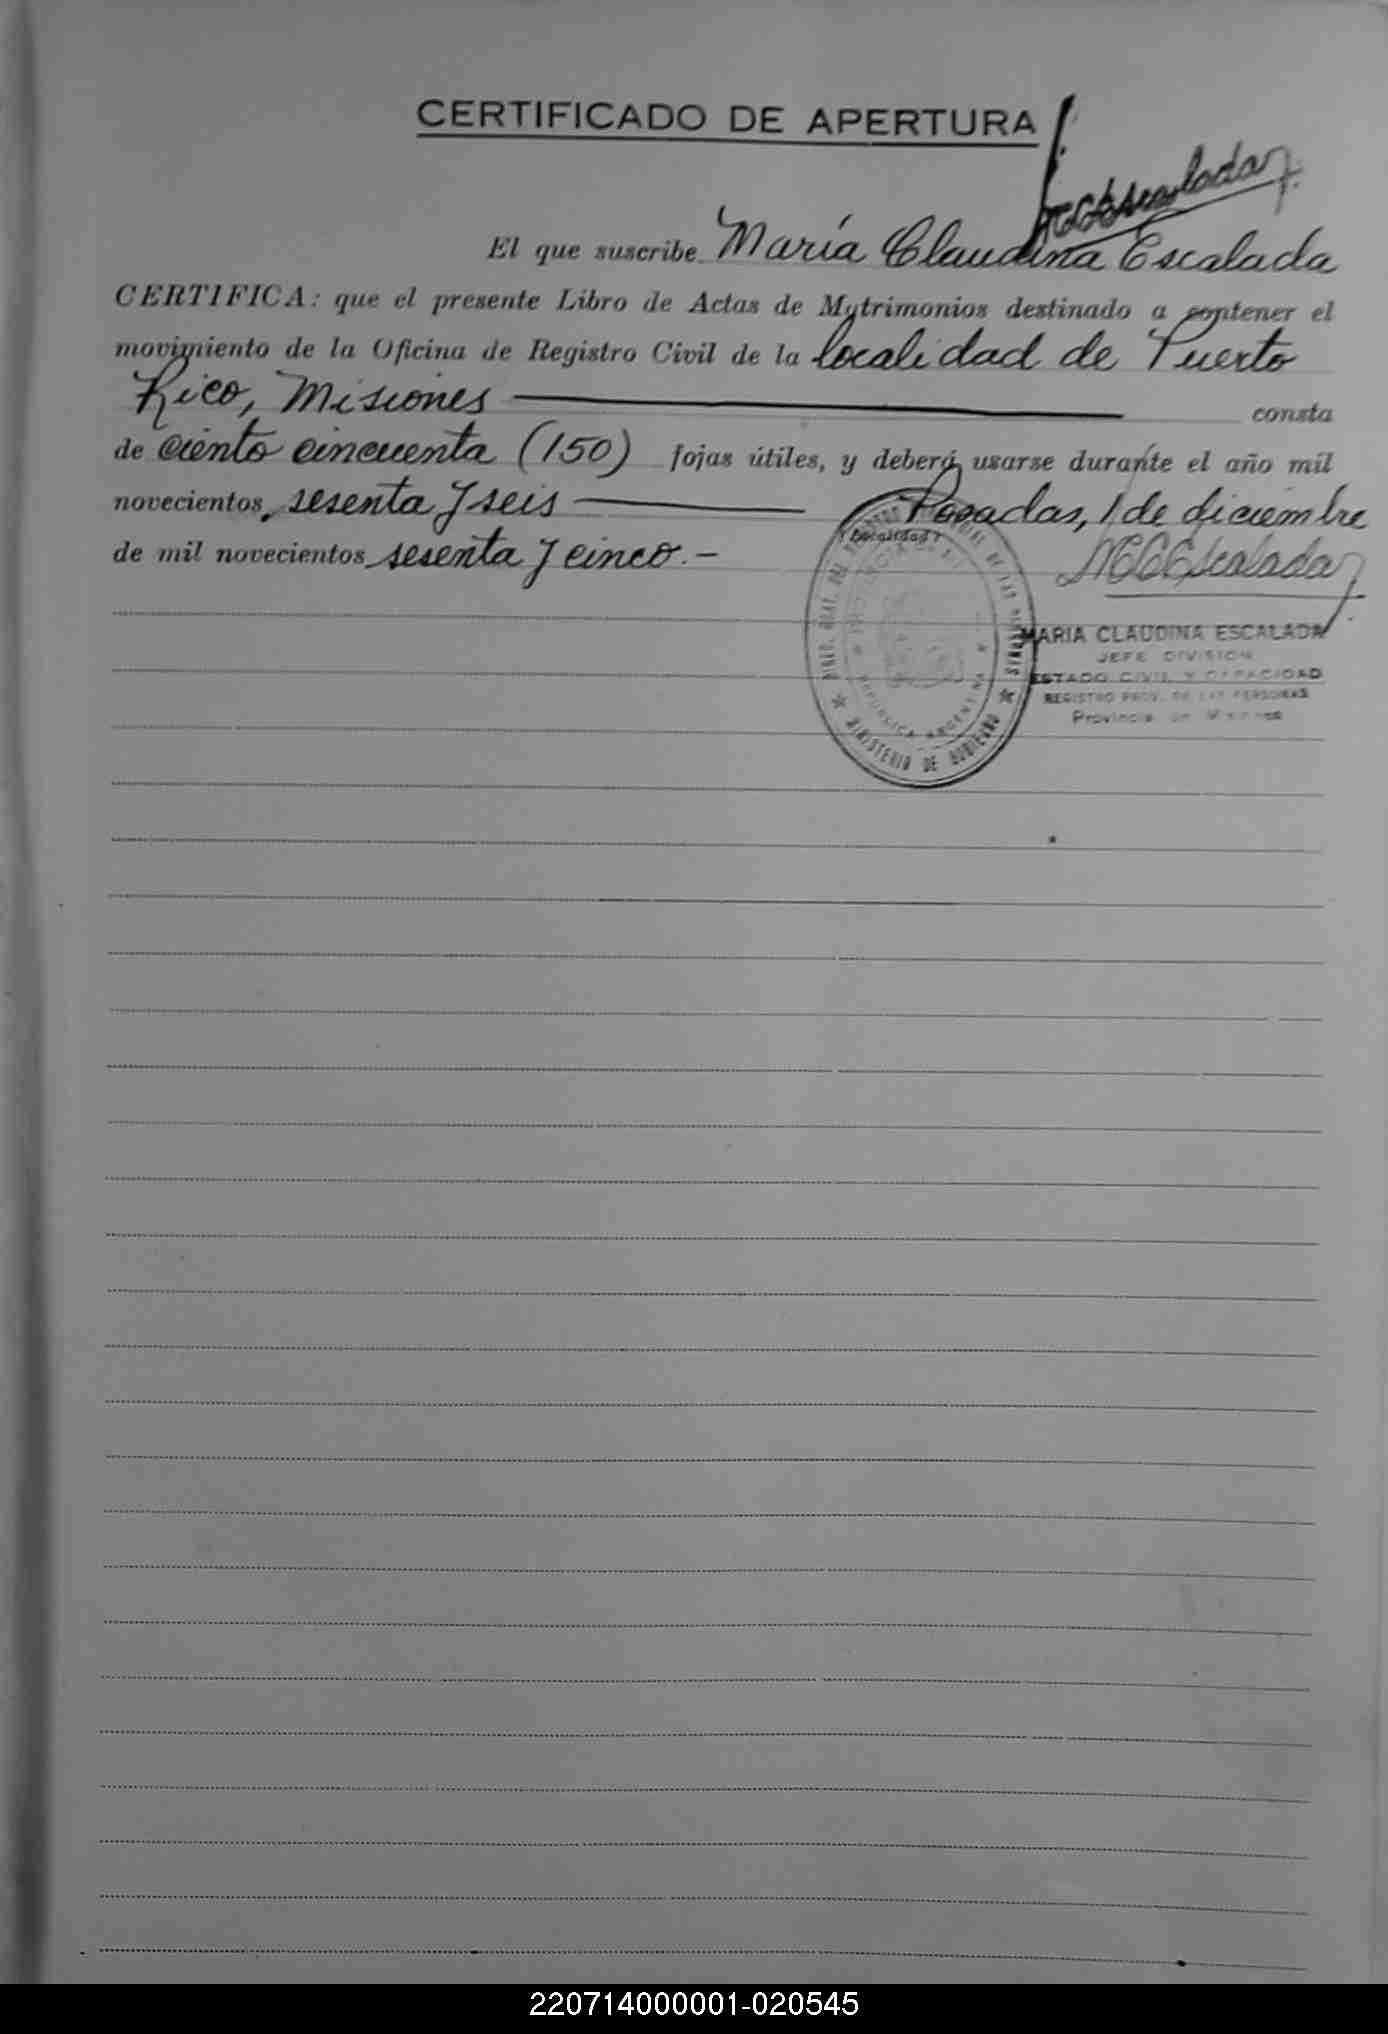 CERTIFICADO DE APERTURA
MCEscalada
El que suscribe María Claudina Escalada
CERTIFICA: que el presente Libro de Actas de Matrimonios destinado a contener el
movimiento de la Oficina de Registro Civil de la localidad de Puerto
Rico, Misiones consta
de ciento cincuenta (150) fojas útiles, y deberá usarse durante el año mil
novecientos sesenta y seis Posadas, 1 de diciembre
(Localidad)
de mil novecientos sesenta y cinco.-
MCEscalada
MARIA CLAUDINA ESCALADA
JEFE DIVISION
ESTADO CIVIL Y CAPACIDAD
REGISTRO PROV. DE LAS PERSONAS
Provincia de Misiones
MINISTERIO DE GOBIERNO
REPUBLICA ARGENTINA
220714000001-020545